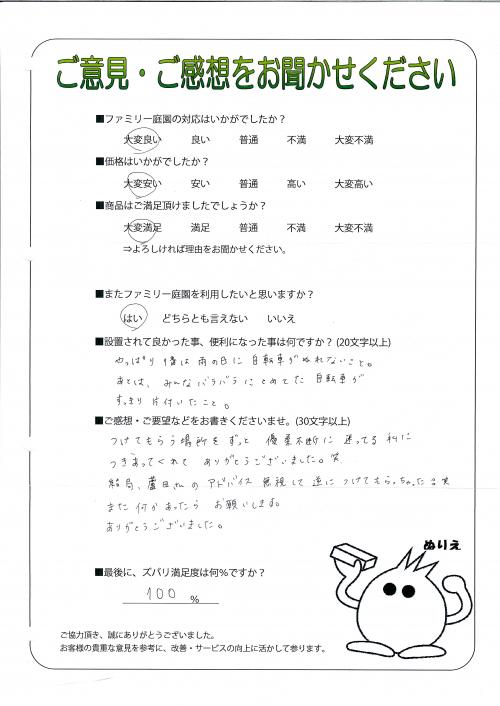 ご意見・ご感想をお聞かせください
■ファミリー庭園の対応はいかがでしたか？
大変良い 良い 普通 不満 大変不満
■価格はいかがでしたか？
大変安い 安い 普通 高い 大変高い
■商品はご満足頂けましたでしょうか？
大変満足 満足 普通 不満 大変不満
⇒よろしければ理由をお聞かせください。
■またファミリー庭園を利用したいと思いますか？
はい どちらとも言えない いいえ
■設置されて良かった事、便利になった事は何ですか？(20文字以上)
やっぱり1番は雨の日に自転車がぬれないこと。
あとは、みんなバラバラにとめてた自転車が
すっきり片付いたこと。
■ご感想・ご要望などをお書きくださいませ。(30文字以上)
つけてもらう場所をずっと優柔不断に迷ってる私に
つきあってくれてありがとうございました。笑
結局、蘆田さんのアドバイス無視して逆につけてもらっちゃったの笑
また何かあったらお願いします。
ありがとうございました。
ぬりえ
■最後に、ズバリ満足度は何%ですか？
100 %
ご協力頂き、誠にありがとうございました。
お客様の貴重な意見を参考に、改善・サービスの向上に活かして参ります。